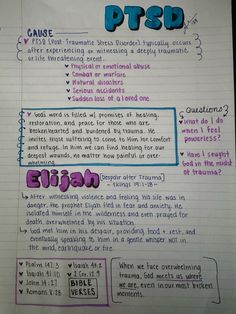 PTSD
CAUSE
PTSD (Post-Traumatic Stress Disorder) typically occurs
after experiencing or witnessing a deeply traumatic
or life threatening event.
Physical or emotional abuse
Combat or warfare
Natural disasters
Serious accidents
Sudden loss of a loved one
God's word is filled w/ promises of healing,
restoration, and peace for those who are
brokenhearted and burdened by trauma. He
invites those suffering to come to Him for comfort
and refuge. In Him we can find healing for our
deepest wounds, no matter how painful or over-
whelming.
Questions?
What do I do
when I feel
powerless?
Have I sought
God in the midst
of trauma?
Elijah
(Despair after Trauma)
- 1 Kings 19:1-18 -
After witnessing violence and feeling his life was in
danger, the prophet Elijah fled in fear and anxiety. He
isolated himself in the wilderness and even prayed for
death, overwhelmed by his situation.
God met him in his despair, providing food + rest, and
eventually speaking to him in a gentle whisper not in
the wind, earthquake or fire.
Psalm 147:3
Isaiah 41:10
John 14:27
Romans 8:28
Isaiah
2 Cor.
BIBLE
VERSES
When we face overwhelming
trauma, God meets us where
we are, even in our most broken
moments.